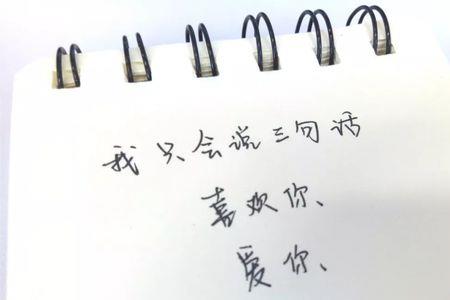 我只会说三句话
喜欢你、
爱你、